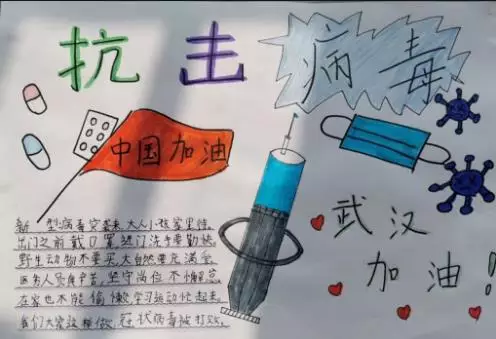 抗击病毒
中国加油
武汉
加油!
新型病毒突袭来,大人小孩家里待。
出门之前戴口罩,进门洗手要勤快。
野生动物不要买,大自然要充满爱。
医务人员很辛苦,坚守岗位不懈怠。
在家也不能偷懒,学习运动忙起来。
我们大家这样做,冠状病毒被打败。